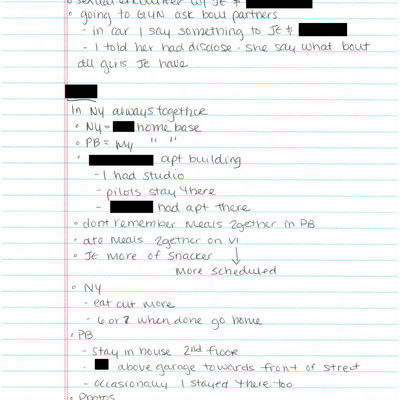 sexual encounter w/ JE &
◦ going to GYN ask bout partners
- in car I say something to JE &
- I told her had disclose - she say what bout
all girls JE have
In NY always together
◦ NY = home base
◦ PB = my " "
◦ apt building
- I had studio
- pilots stay there
- had apt there
◦ dont remember meals 2gether in PB
◦ ate meals 2gether on VI
◦ JE more of snacker ↓
more scheduled
◦ NY
- eat out more
- 6 or 7 when done go home
◦ PB
- stay in house 2nd floor
- above garage towards front of street
- occasionally I stayed there too
◦ Photos